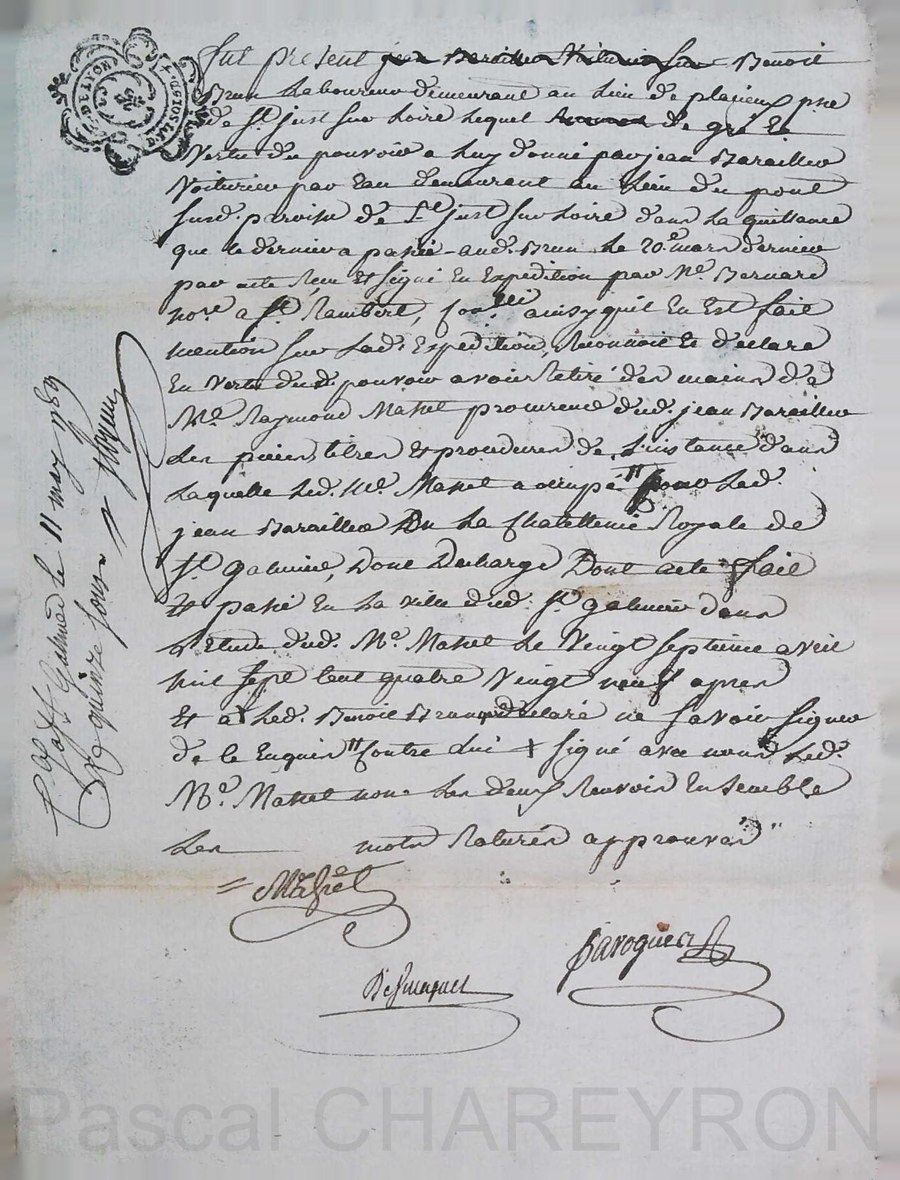 DE LYON
fut présent jean Baraillon Voiturier sur Benoit
Brun Laboureur demeurant au lieu de plasieux psse
de St just sur Loire Lequel de gré Et
Vertu du pouvoir a Luy donné par jean Baraillon
Voiturier par Eau demeurant au Lieu du pont
susd. paroisse de St just sur Loire dans La quittance
que le dernier a passé aud. Brun Le 20e mars dernier
par acte Reçu Et signé En Expedition par Me. Bernard
nore a St Rambert, ainsy quil En Est fait
mention sur Lad. Expedition, Reconnoit Et declare
En Vertu dud. pouvoir avoir Retiré des mains de
Me. Raymond Mathel procureur dud. jean Baraillon
Les pieces, titres Et procedures de L'instance dans
Laquelle Led. Me. Mathel a occupé pour Led.
jean Baraillon En La Chatellenie Royale de
St galmier, Donc Decharge Dont acte fait
Et passé En La ville dud. St galmier dans
L'Etude dud. Me. Mathel Le Vingt Septieme avril
mil sept Cent quatre Vingt neuf apres
Et a Led. Benoit Brun declaré ne savoir signer
de ce Enquis signé avec nous Led.
Me. Mathel Les deux Renvois Ensemble
Les mots Raturés approuvés
Mathel
Baroguer
St Galmier le 11 may 1789
Reçu quinze sous
Pascal CHAREYRON